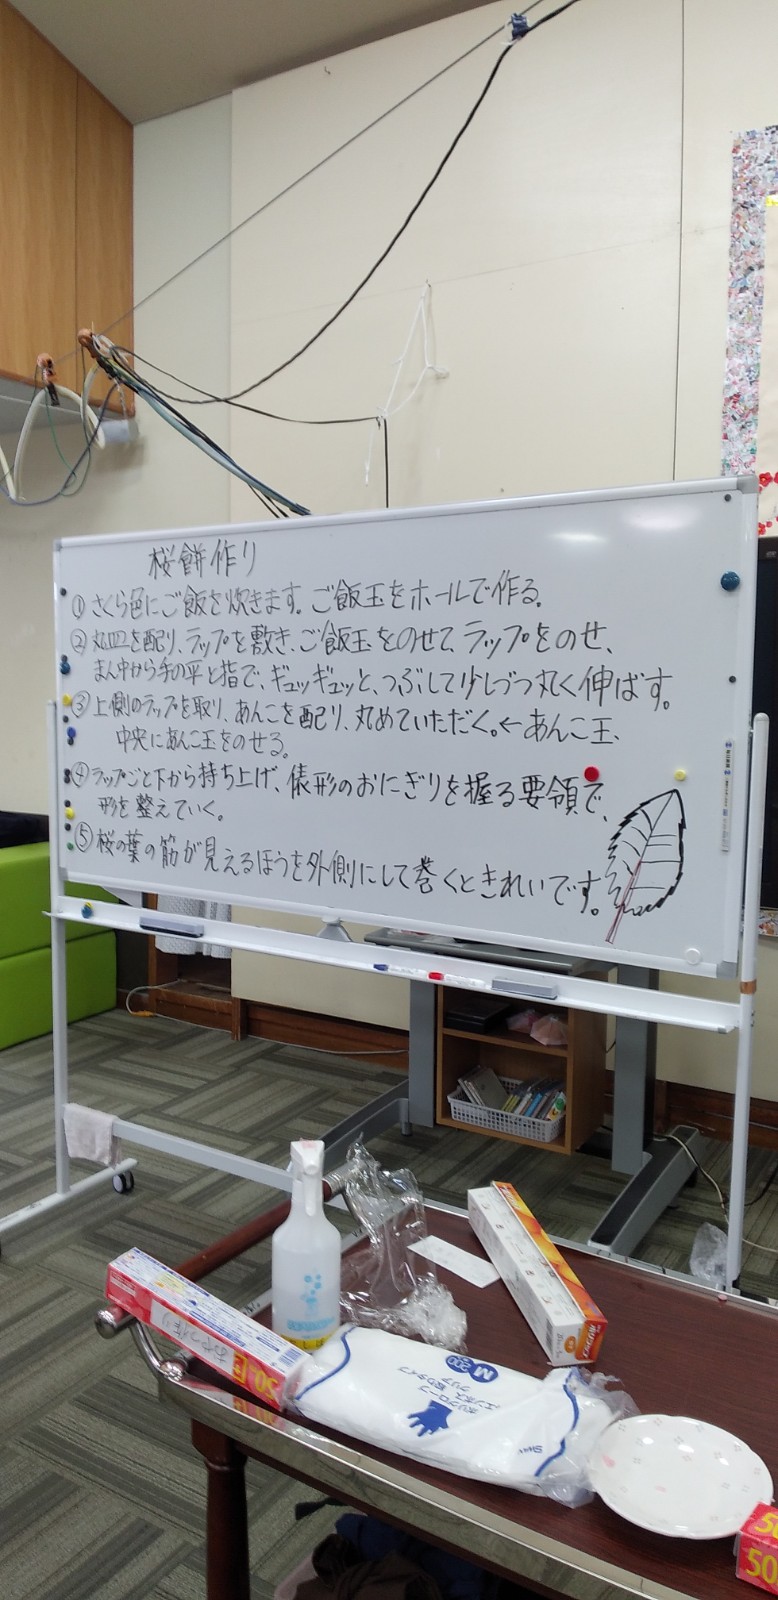 桜餅作り
①さくら色にご飯を炊きます。ご飯玉をホールで作る。
②丸皿を配り、ラップを敷き、ご飯玉をのせて、ラップをのせ、
まん中から手の平と指で、ギュッギュッと、つぶして少しづつ丸く伸ばす。
③上側のラップを取り、あんこを配り、丸めていただく。←あんこ玉、
中央にあんこ玉をのせる。
④ラップごと下から持ち上げ、俵形のおにぎりを握る要領で、
形を整えていく。
⑤桜の葉の筋が見えるほうを外側にして巻くときれいです。
おやつ作り
20
M
200
ポリグローブ
エンボス 絞りタイプ
クリア
SWAN
ポリラップ
50
50